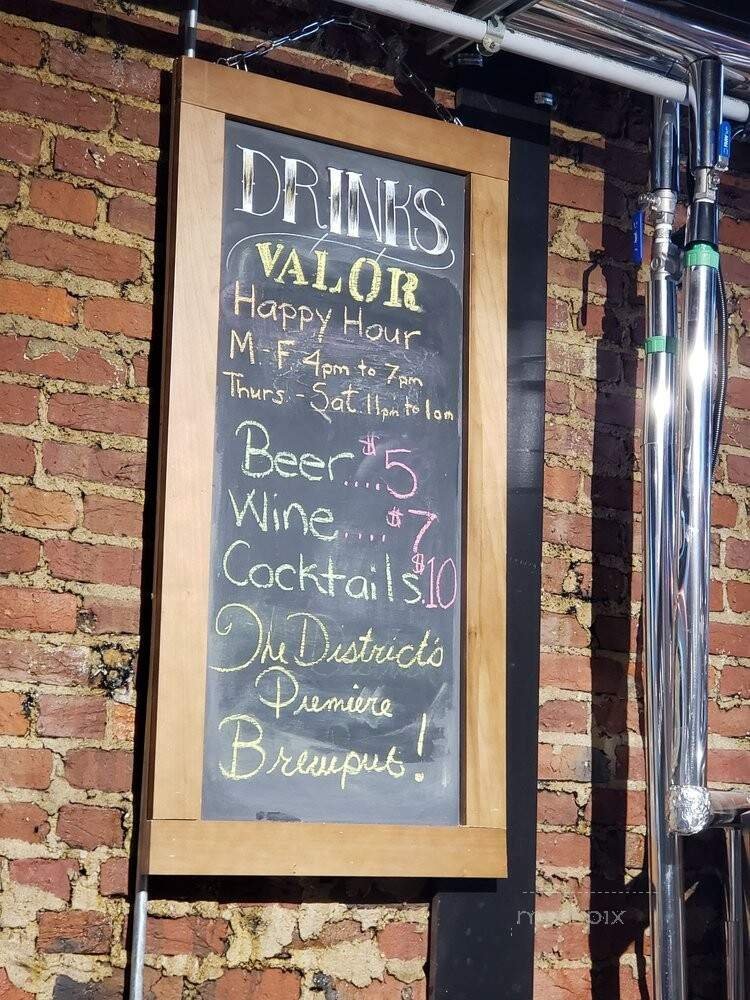 DRINKS
VALOR
Happy Hour
M-F 4pm to 7pm
Thurs - Sat 11pm to 1am
Beer....$5
Wine....$7
Cocktails.$10
The District's
Premiere
Brewpub!